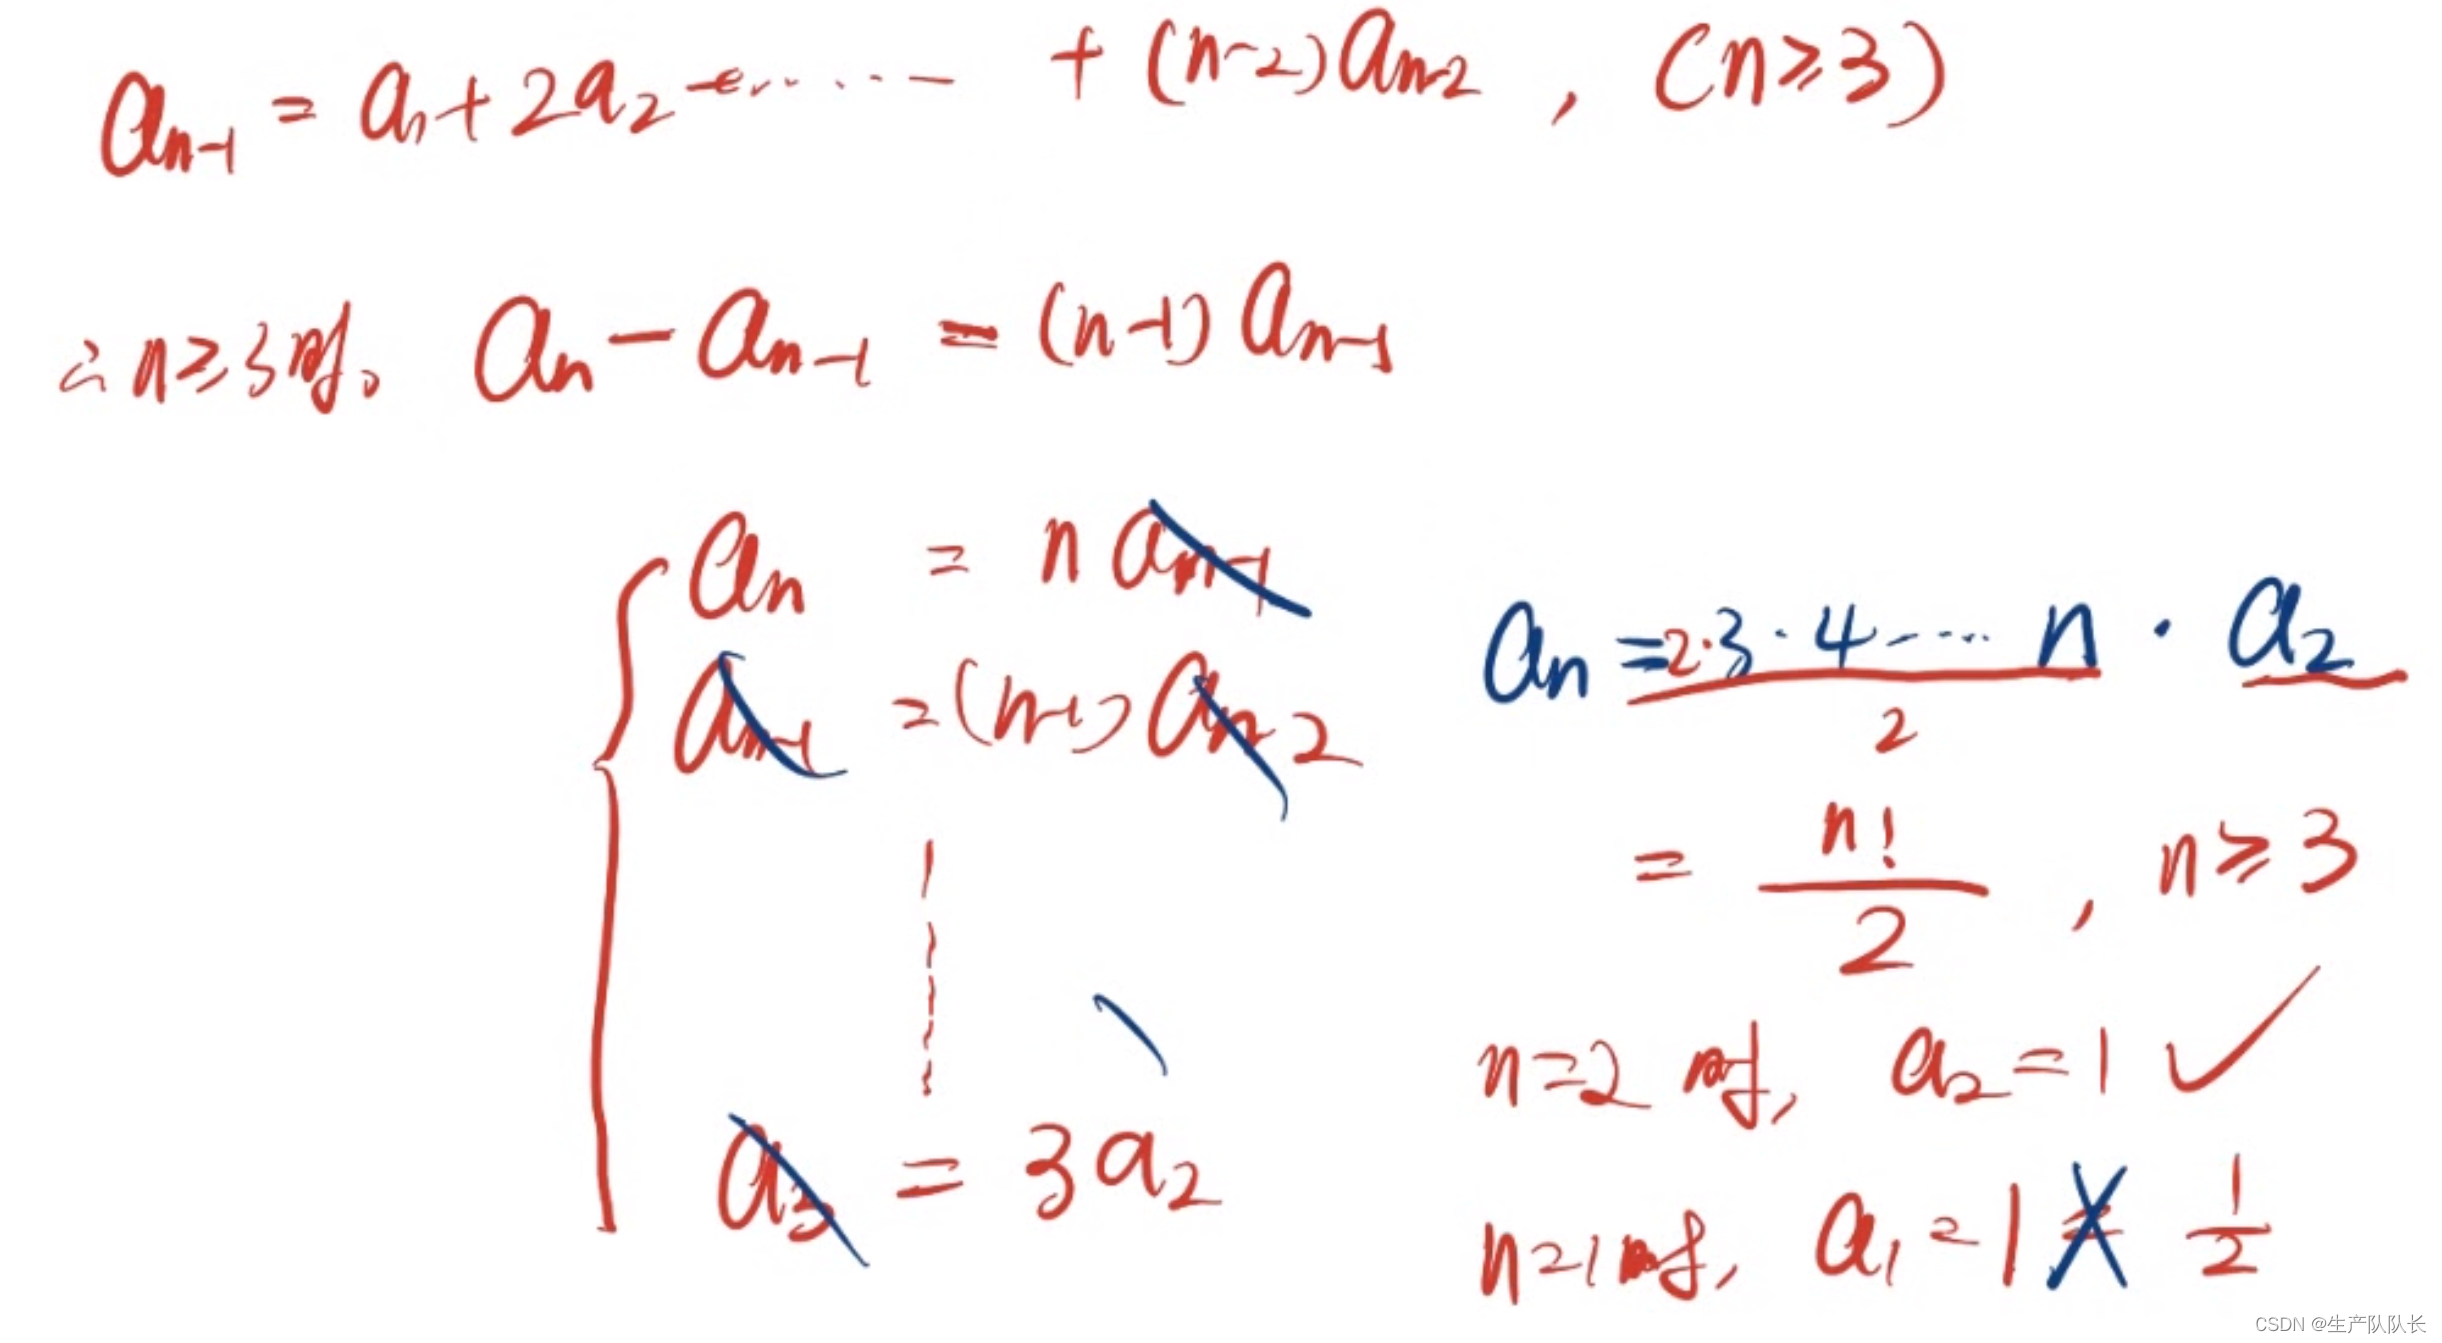 aₙ₋₁ = a₁ + 2a₂ + ...... + (n-2)aₙ₋₂ , (n≥3)
∴ n≥3时。 aₙ - aₙ₋₁ = (n-1) aₙ₋₁
aₙ = n aₙ₋₁
aₙ₋₁ = (n-1) aₙ₋₂
a₃ = 3a₂
aₙ = 2·3·4 ... n · a₂
2
= n!/2 , n≥3
n=2 时, a₂=1 ✓
n=1时, a₁=1 ≠ 1/2
CSDN @生产队队长